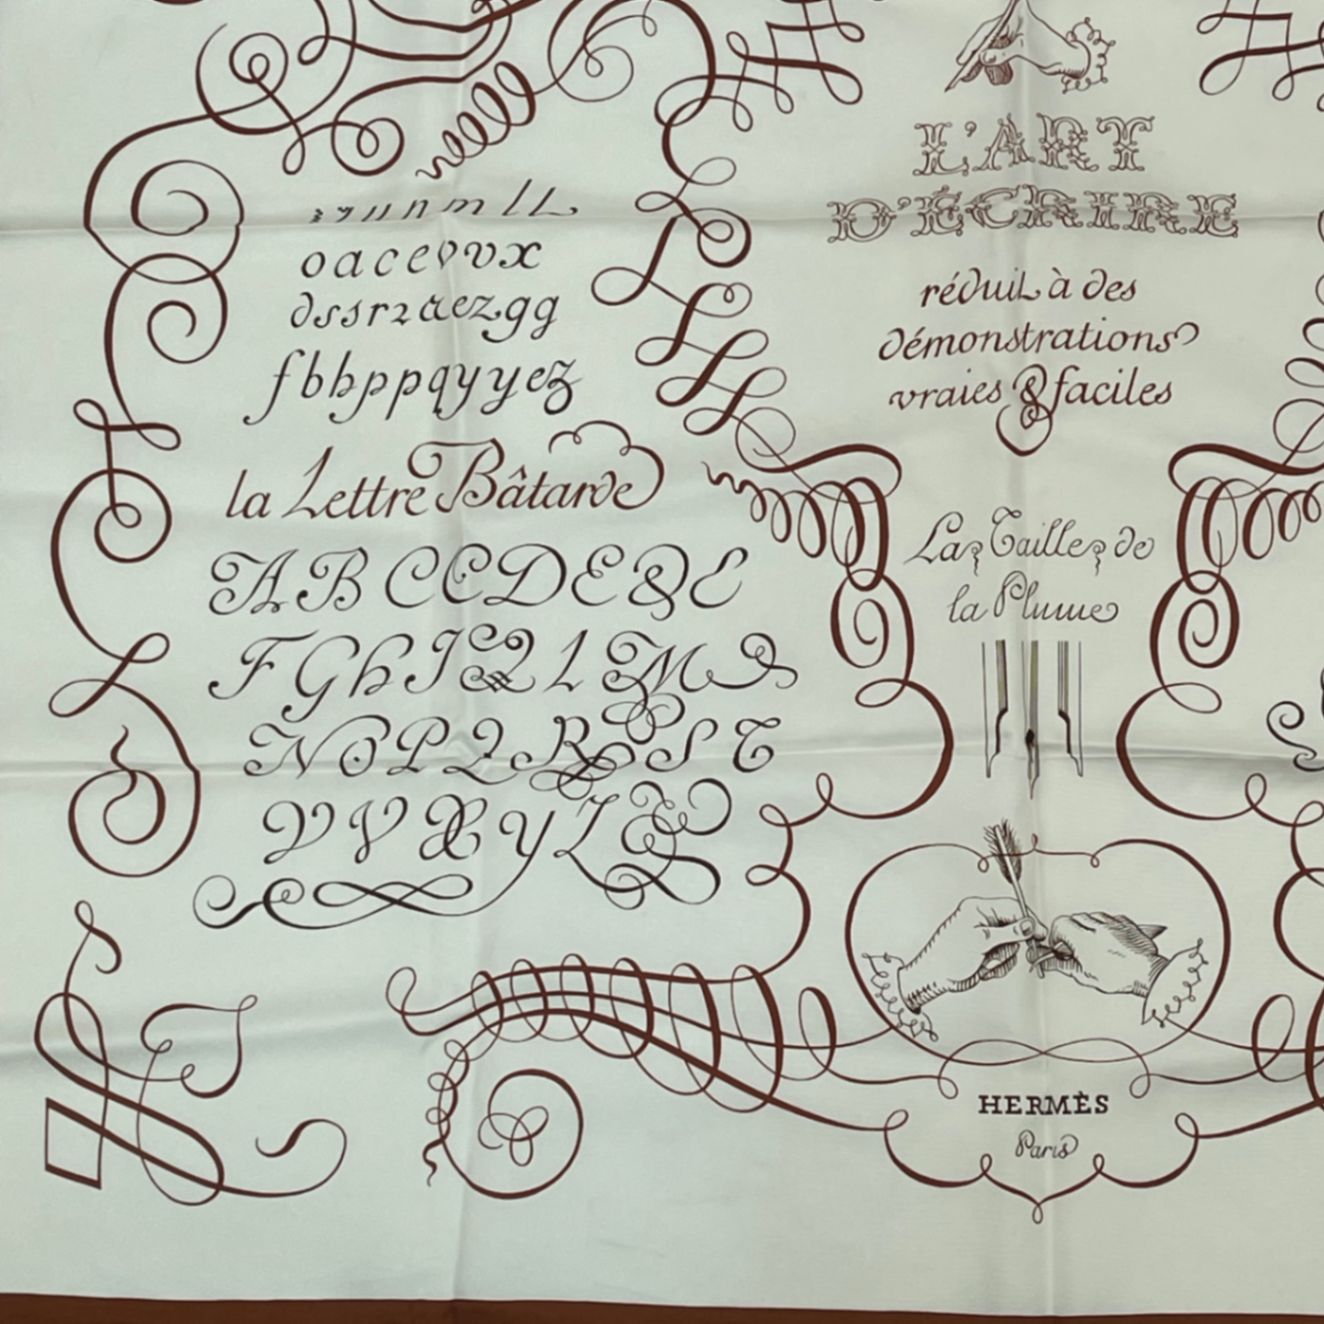 o a c e v v x
d s s r 2 a e z g g
f b h p p q y y e z
la Lettre Bâtarde
A B C C D E & E
N O P 2 R S S T
L'ART
D'ÉCRIRE
réduit à des
démonstrations
vraies & faciles
La Taille de
la Plume
HERMÈS
Paris